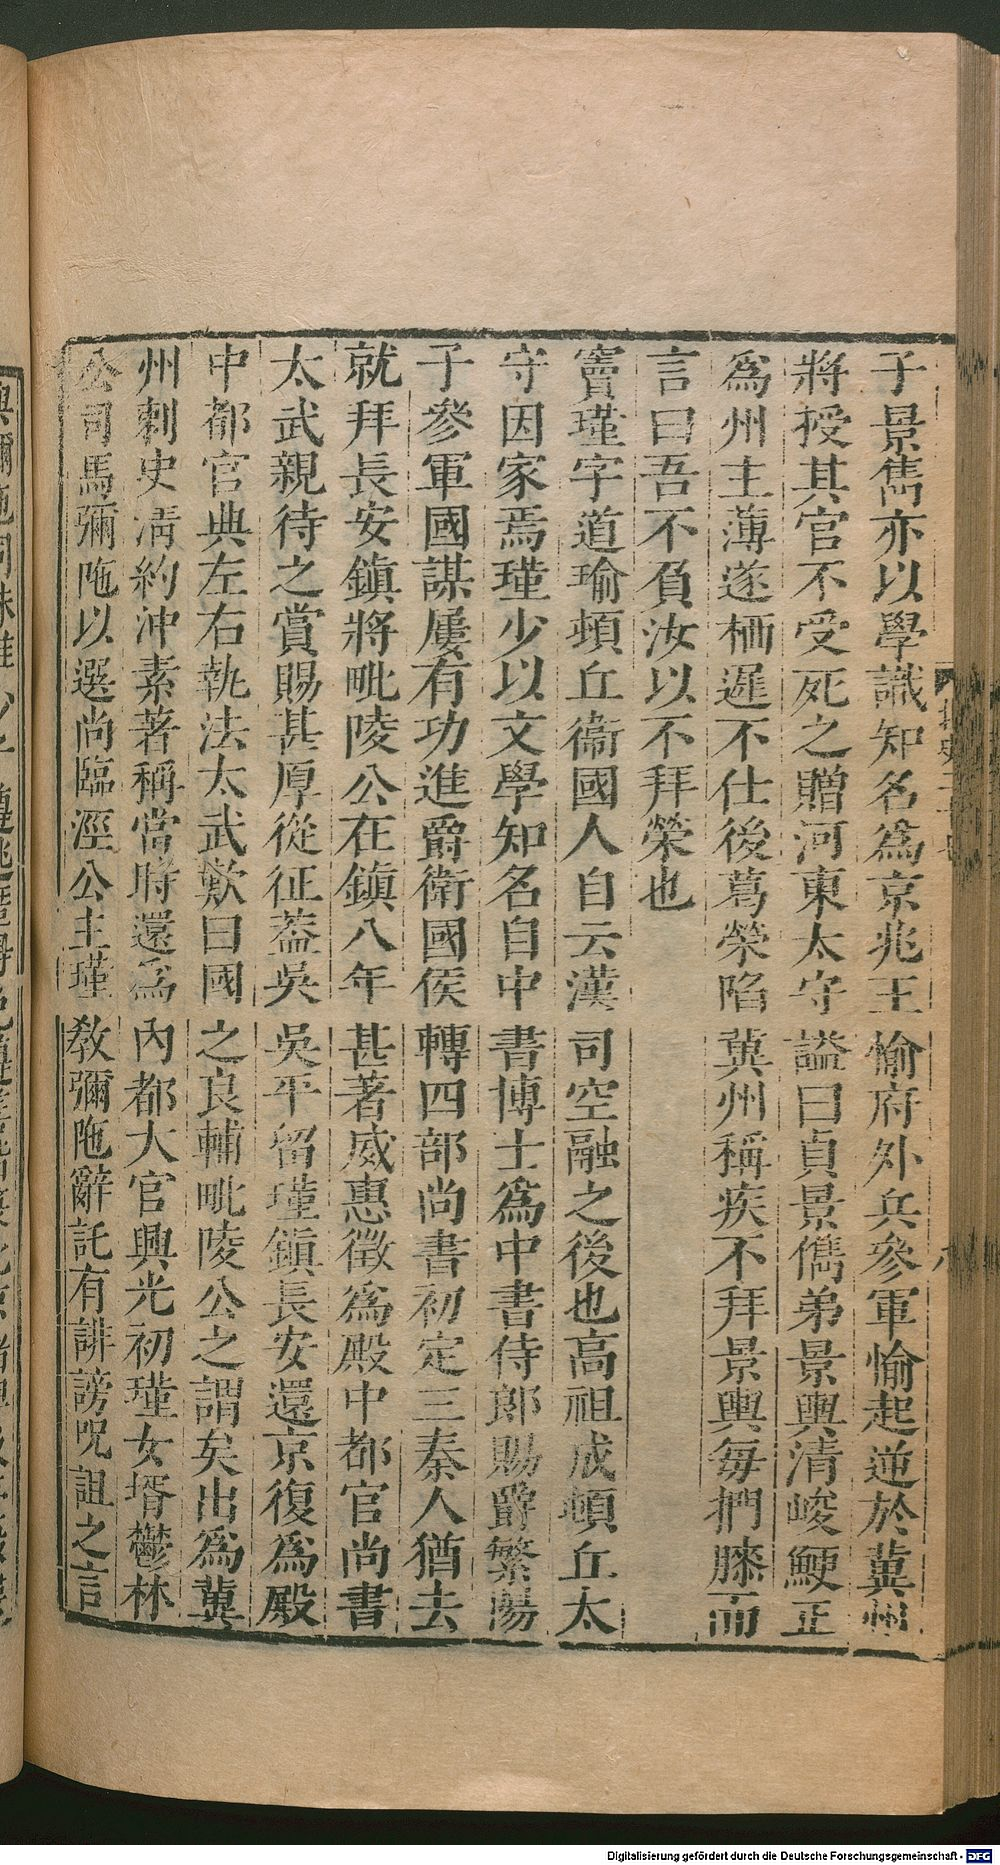 子景雋亦以學識知名爲京兆王愉府外兵參軍愉起逆於冀州
將授其官不受死之贈河東太守謚曰貞景儁弟景興清峻鯁正
爲州主薄遂栖遲不仕後葛榮陷冀州稱疾不拜景興每捫膝而
言曰吾不負汝以不拜榮也
竇瑾字道瑜頓丘衞國人自云漢司空融之後也高祖成頓丘太
守因家焉瑾少以文學知名自中書博士爲中書侍郎賜爵繁陽
子參軍國謀屢有功進爵衛國侯轉四部尚書初定三秦人猶去
就拜長安鎮將毗陵公在鎮八年甚著威惠徵爲殿中都官尚書
太武親待之賞賜甚厚從征葢吳吳平留瑾鎮長安還京復爲殿
中都官典左右執法太武歎曰國之良輔毗陵公之謂矣出爲冀
州刺史清約沖素著稱當時還爲內都大官興光初瑾女壻鬱林
公司馬彌陁以選尚臨涇公主瑾教彌陁辭託有誹謗呪詛之言
Digitalisierung gefördert durch die Deutsche Forschungsgemeinschaft - DFG